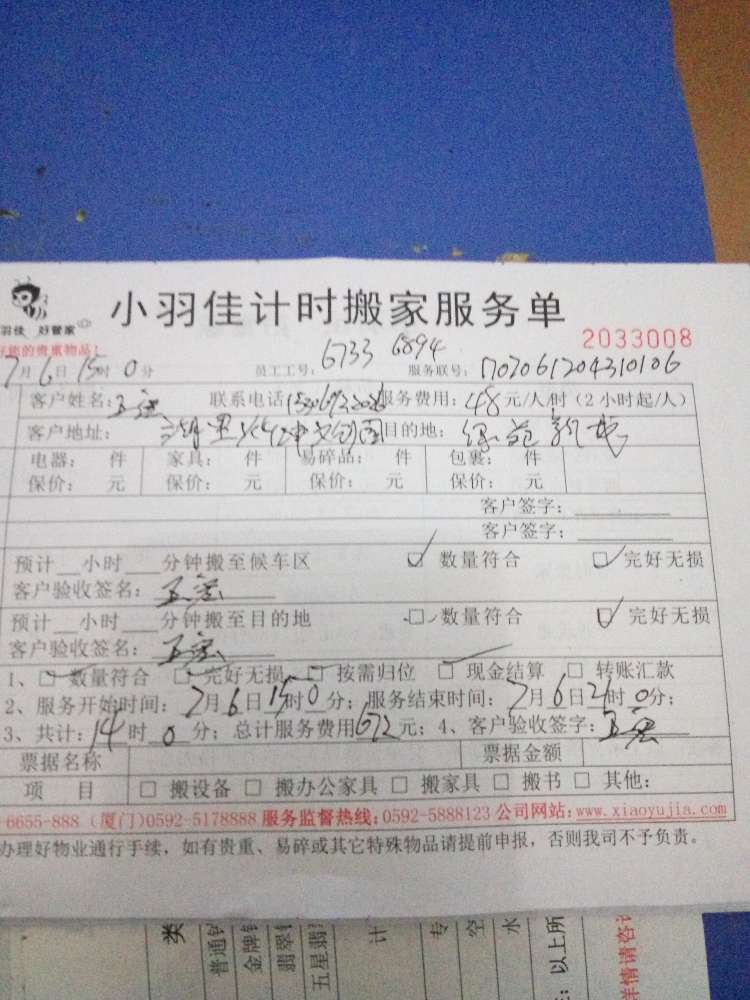 小羽佳计时搬家服务单
羽佳 好管家
2033008
的贵重物品!
7月6日15时0分 员工工号: 6733 6894 服务联号: 170706120431 0106
客户姓名: 联系电话: 服务费用: 48元/人/时(2小时起/人)
客户地址: 目的地: 绿苑新城
电器: 件 家具: 件 易碎品: 件 包裹: 件
保价: 元 保价: 元 保价: 元 保价: 元
客户签字:
客户签字:
预计__小时___分钟搬至候车区 ☑ 数量符合 ☑ 完好无损
客户验收签名:
预计__小时___分钟搬至目的地 ☑ 数量符合 ☑ 完好无损
客户验收签名:
1、☑ 数量符合 ☑ 完好无损 ☑ 按需归位 ☑ 现金结算 □ 转账汇款
2、服务开始时间: 7月6日15时0分; 服务结束时间: 7月6日21时0分;
3、共计: 14时0分; 总计服务费用672元; 4、客户验收签字:
票据名称 票据金额
项 目 □ 搬设备 □ 搬办公家具 □ 搬家具 □ 搬书 □ 其他:
-6655-888 (厦门)0592-5178888 服务监督热线:0592-5888123 公司网站:www.xiaoyujia.com
办理好物业通行手续, 如有贵重、易碎或其它特殊物品请提前申报, 否则我司不予负责。
类
普通钟
金牌钟
翡翠钟
五星翡翠
计
专
空
水
: 以上所
详情请咨询